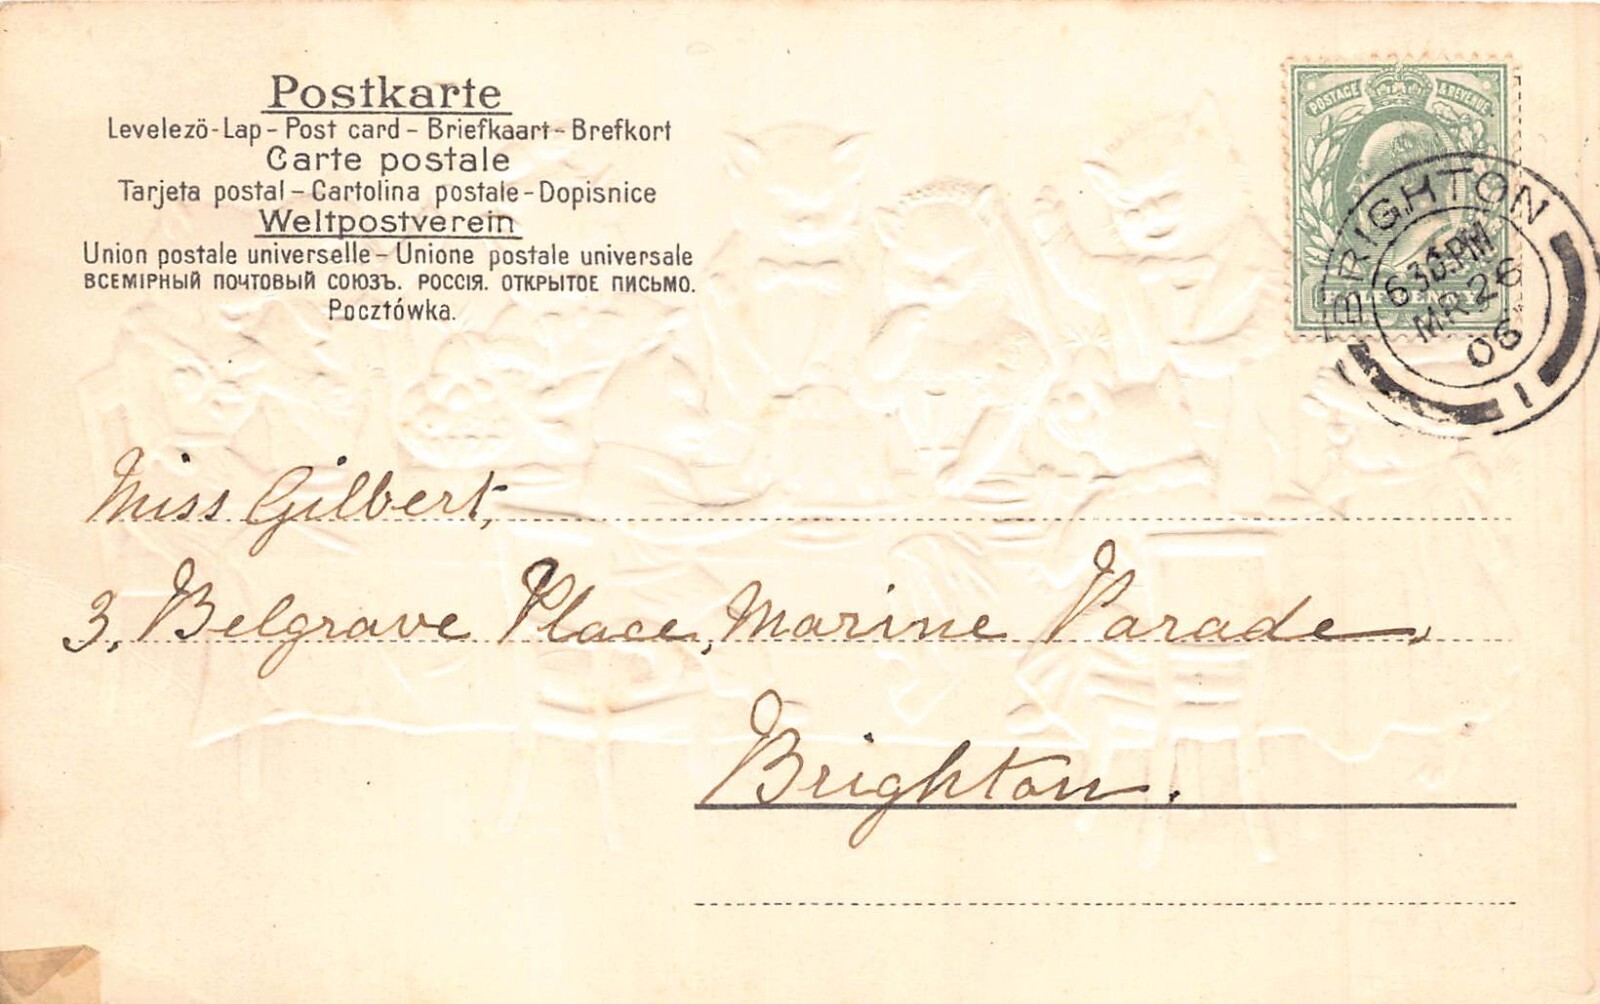 Postkarte
Levelezö-Lap - Post card - Briefkaart - Brefkort
Carte postale
Tarjeta postal - Cartolina postale - Dopisnice
Weltpostverein
Union postale universelle - Unione postale universale
ВСЕМІРНЫЙ ПОЧТОВЫЙ СОЮЗЪ. РОССІЯ. ОТКРЫТОЕ ПИСЬМО.
Pocztówka.
POSTAGE & REVENUE
HALFPENNY
BRIGHTON
630PM
MR 26
06
1
Miss Gilbert,
3, Belgrave Place, Marine Parade,
Brighton.